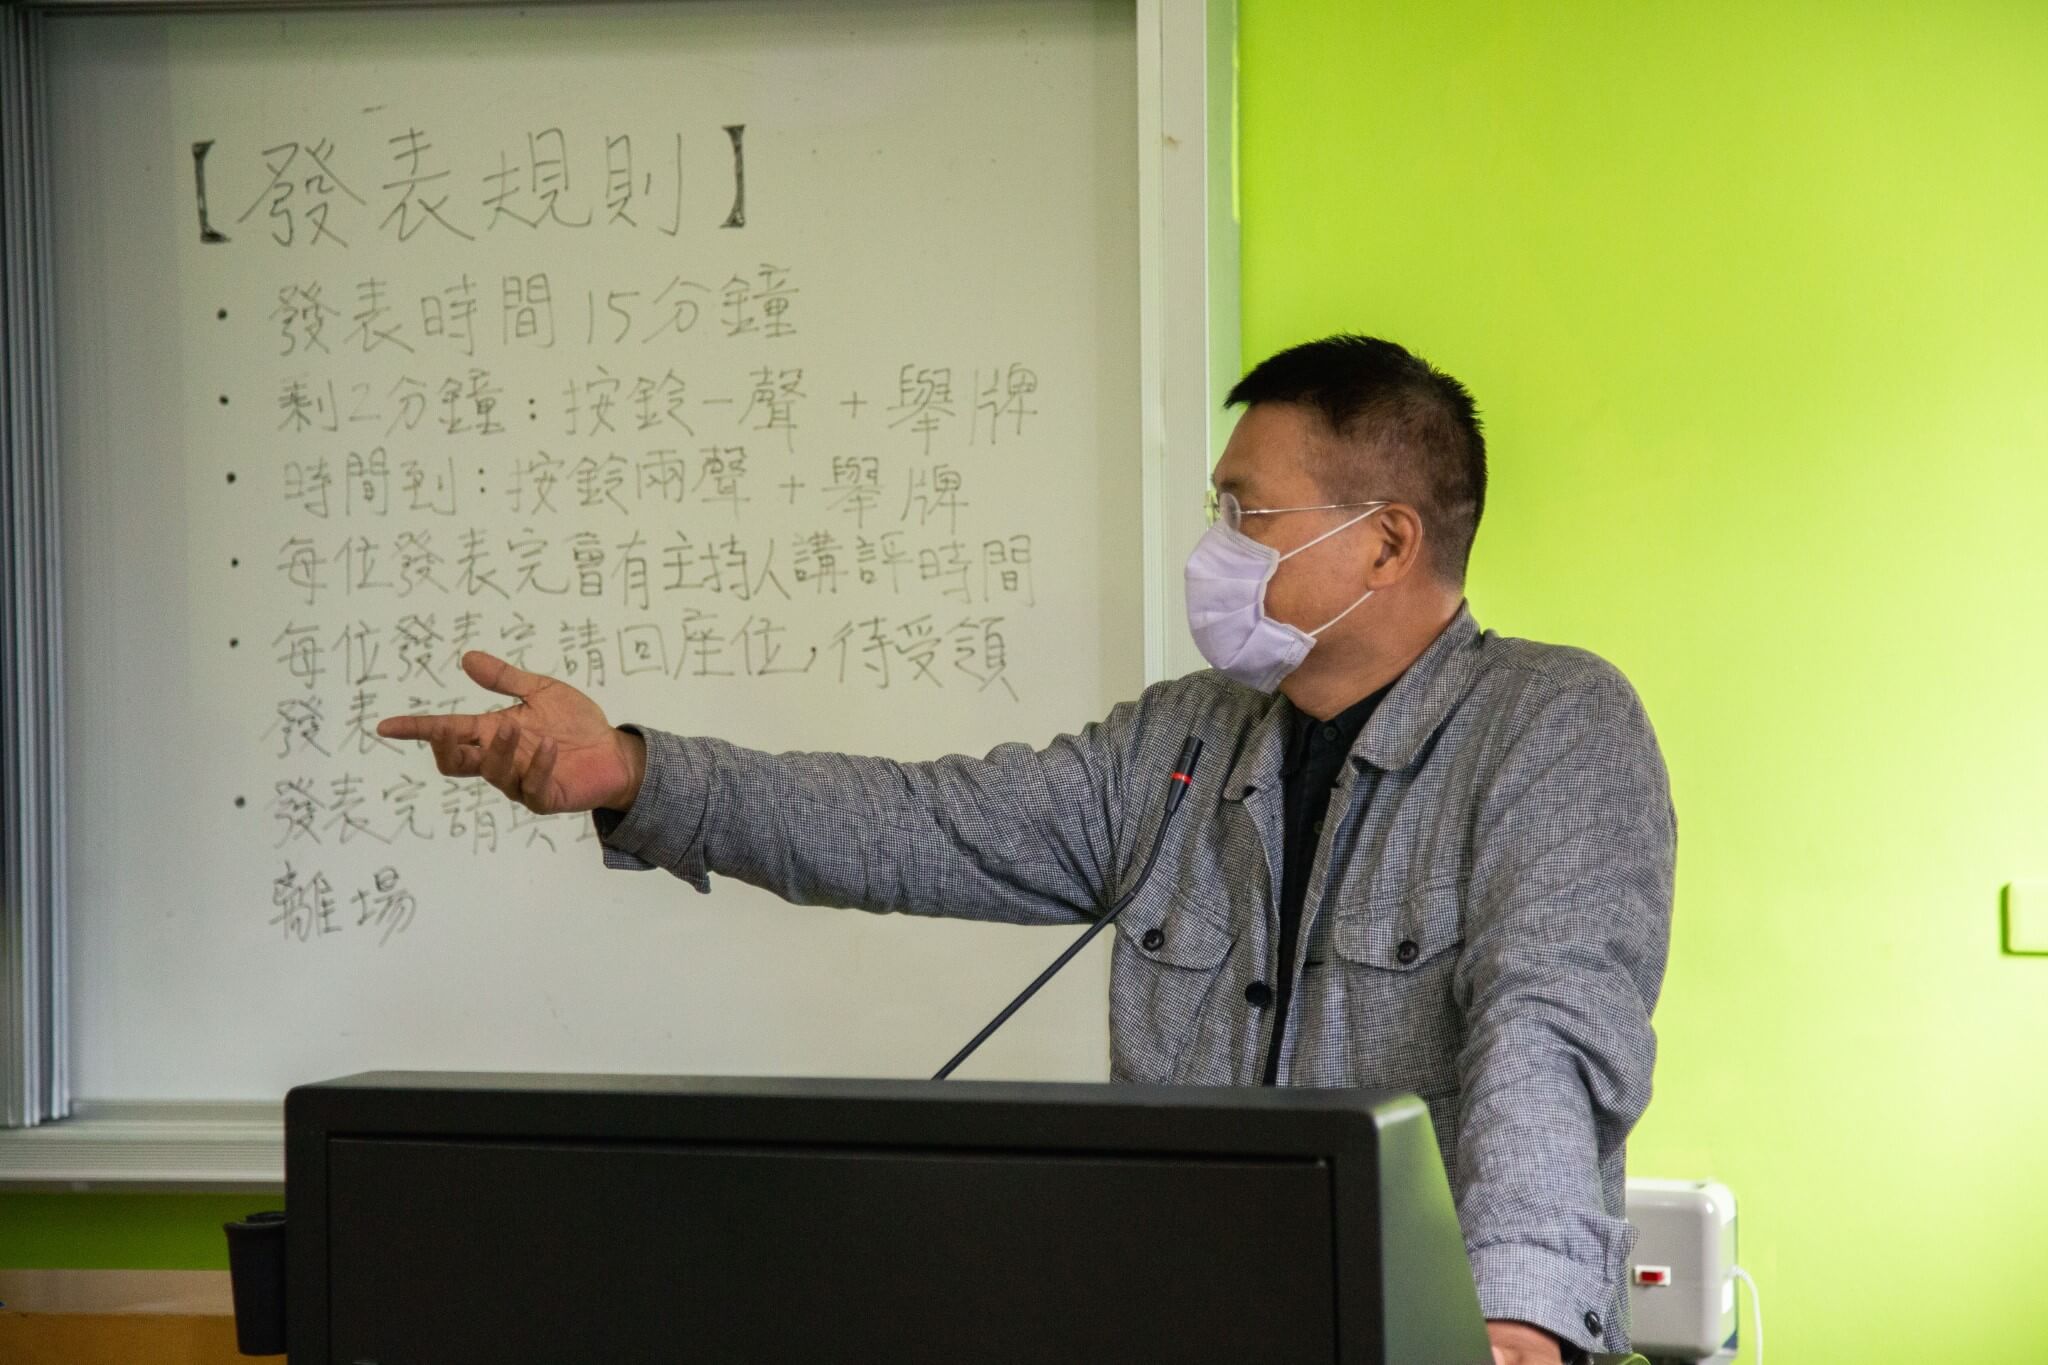 【發表規則】
• 發表時間 15分鐘
• 剩2分鐘：按鈴一聲 + 舉牌
• 時間到：按鈴兩聲 + 舉牌
• 每位發表完會有主持人講評時間
• 每位發表完請回座位，待受領
發表
• 發表完請與
離場